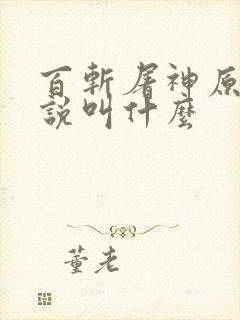 百斬屠神原
說叫什麼
董老